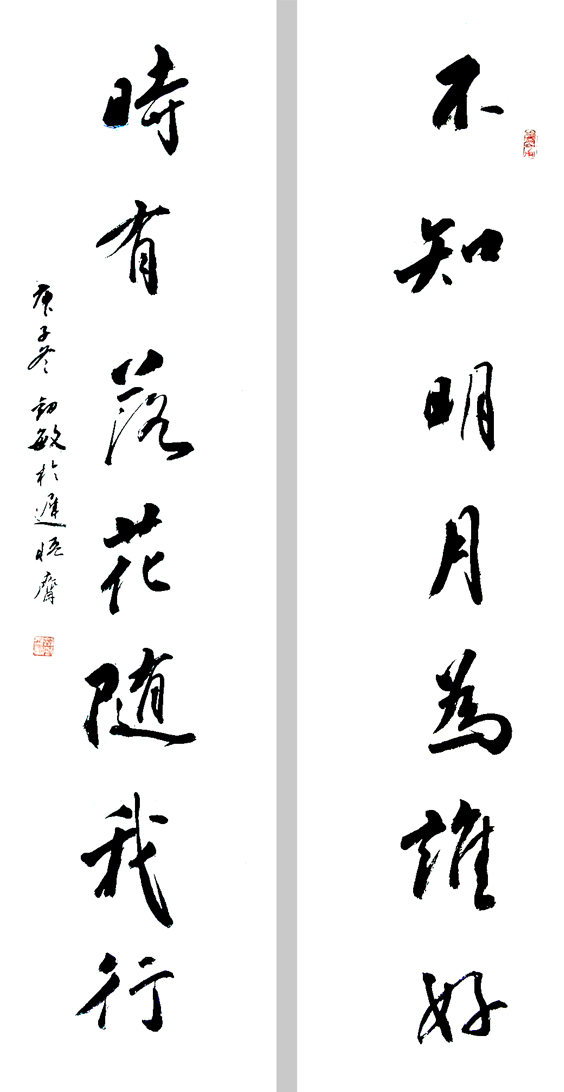 不知明月為誰好
時有落花随我行
庚子冬 韌敏於遲悟齋